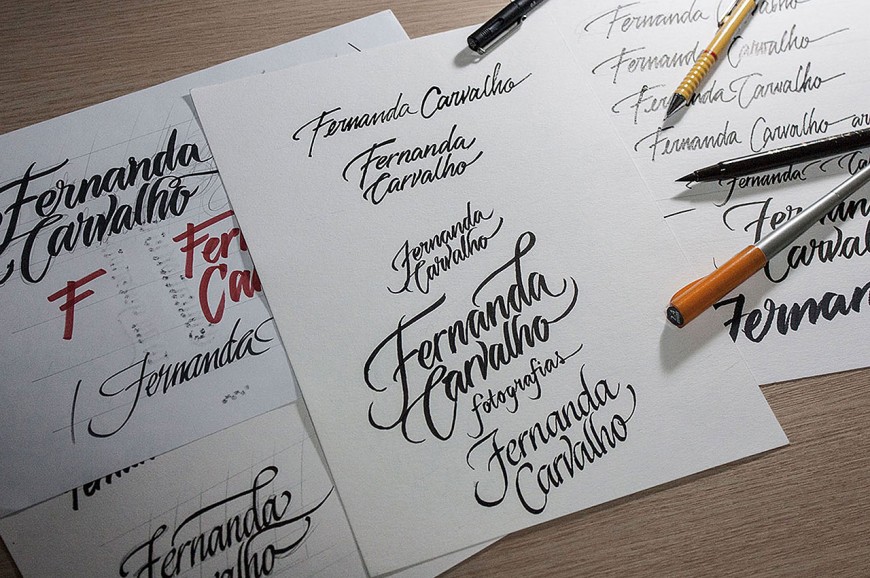 Fernanda
Carvalho
F
Fer
Ca
Fernanda
Fernanda
Carvalho
Fernanda Carvalho
Fernanda
Carvalho
Fernanda
Carvalho
Fernanda
Carvalho
fotografias
Fernanda
Carvalho
Fernanda Carvalho
Fernanda Carvalho
Fernanda Carvalho
Fernanda Carvalho
Fernanda Ca
Fernan
Carvalh
Fernan